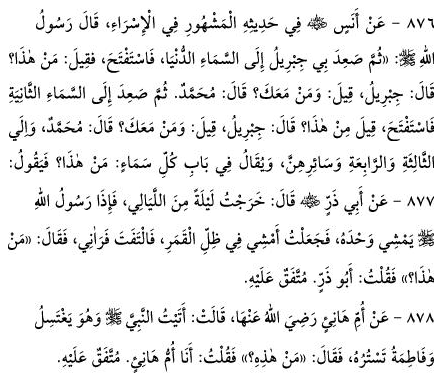 ٨٧٦ - عَنْ أَنَسٍ ﷺ فِي حَدِيثِهِ الْمَشْهُورِ فِي الْإِسْرَاءِ، قَالَ رَسُولُ
اللهِ ﷺ: «ثُمَّ صَعِدَ بِي جِبْرِيلُ إِلَى السَّمَاءِ الدُّنْيَا، فَاسْتَفْتَحَ، فقِيلَ: مَنْ هٰذَا؟
قَالَ: جِبْرِيلُ، قِيلَ: وَمَنْ مَعَكَ؟ قَالَ: مُحَمَّدٌ. ثُمَّ صَعِدَ إِلَى السَّمَاءِ الثَّانِيَةِ
فَاسْتَفْتَحَ، قِيلَ مِنْ هٰذَا؟ قَالَ: جِبْرِيلُ، قِيلَ: وَمَنْ مَعَكَ؟ قَالَ: مُحَمَّدٌ، وَإِلَي
الثَّالِثَةِ وَالرَّابِعَةِ وَسَائِرِهِنَّ، وَيُقَالُ فِي بَابِ كُلِّ سَمَاءٍ: مَنْ هٰذَا؟ فَيَقُولُ:
٨٧٧ - عَنْ أَبِي ذَرٍّ ﷺ قَالَ: خَرَجْتُ لَيْلَةً مِنَ اللَّيَالِي، فَإِذَا رَسُولُ اللهِ
ﷺ يَمْشِي وَحْدَهُ، فَجَعَلْتُ أَمْشِي فِي ظِلِّ الْقَمَرِ، فَالْتَفَتَ فَرَآنِي، فَقَالَ: «مَنْ
هٰذَا؟» فَقُلْتُ: أَبُو ذَرٍّ. مُتَّفَقٌ عَلَيْهِ.
٨٧٨ - عَنْ أُمِّ هَانِئٍ رَضِيَ اللهُ عَنْهَا، قَالَتْ: أَتَيْتُ النَّبِيَّ ﷺ وَهُوَ يَغْتَسِلُ
وَفَاطِمَةُ تَسْتُرُهُ، فَقَالَ: «مَنْ هٰذِهِ؟» فَقُلْتُ: أَنَا أُمُّ هَانِئٍ. مُتَّفَقٌ عَلَيْهِ.